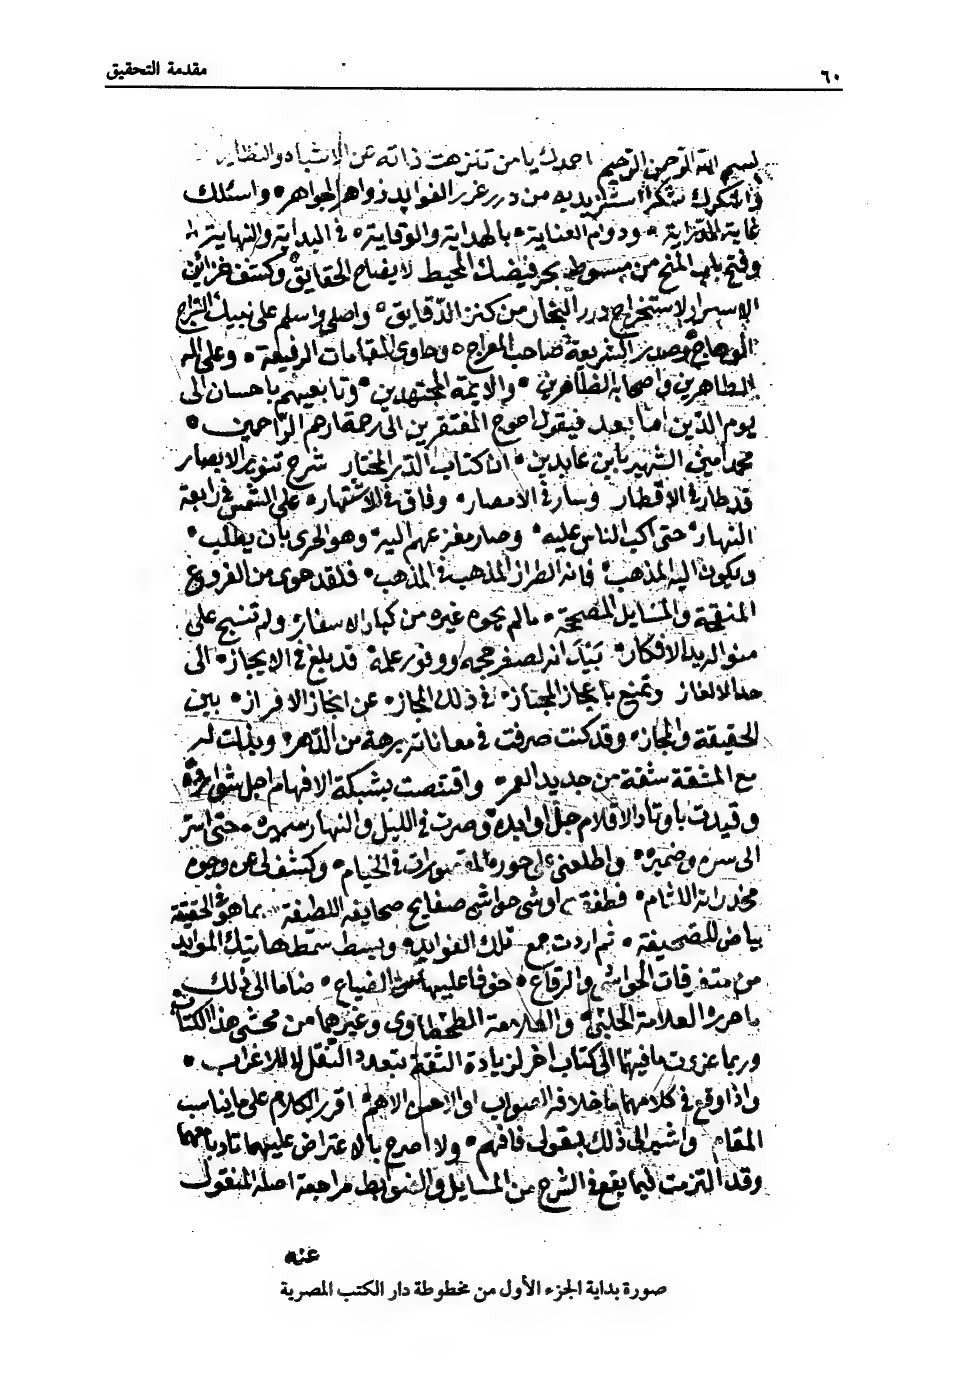 مقدمة التحقيق
٦٠
بسم الله الرحمن الرحيم احمدك يا من تنزهت ذاته عن الاشباه والنظاير
واشكرك شكرا استزيد به من درر غرر الفوايد زواهر الجواهر واسئلك
غاية الدراية ودوام العناية بالهداية والوقاية في البداية والنهاية
وفتح باب المنح من مبسوط بحر فيضك المحيط لايضاح الحقايق وكشف خزائن
الاسرار لاستخراج درر البحار من كنز الدقايق واصلي واسلم على نبيك السراج
الوهاج وصدر الشريعة صاحب المعراج وحاوي المقامات الرفيعة وعلى اله
الطاهرين واصحابه الظاهرين والايمة المجتهدين وتابعيهم باحسان الى
يوم الدين اما بعد فيقول احوج المفتقرين الى رحمة ارحم الراحمين
محمد امين الشهير بابن عابدين ان كتاب الدر المختار شرح تنوير الابصار
قد طار في الاقطار وسار في الامصار وفاق في الاشتهار على الشمس في رابعة
النهار حتى اكب الناس عليه وصار مفزعهم اليه وهو الحري بان يطلب
ويكون اليه المذهب فانه الطراز المذهب في المذهب فلقد حوى من الفروع
المنقحة والمسايل المصححة ما لم يحوه غيره من كبار الاسفار ولم تنسج على
منواله يد الافكار بيد انه لصغر حجمه ووفور علمه قد بلغ في الايجاز الى
حد الالغاز وتمنع باعجاز المجاز في ذلك المجاز عن انجاز الافراز بين
الحقيقة والمجاز وقد كنت صرفت في معاناته برهة من الدهر وبذلت له
مع المشقة شقة من جديد العمر واقتنصت بشبكة الافهام اجل شوارده
وقيدت باوتاد الاقلام جل اوابده وصرت في الليل والنهار سميره حتى اسر
الى سره وضميره واطلعني على حوره المقصورات في الخيام وكشف لي عن وجوه
مخدراته اللثام فطفقت اوشي حواشي صفايح صحايفه اللطيفة بما هو في الحقيقة
بياض للصحيفة ثم اردت جمع تلك الفوايد وبسط سمط هاتيك الموايد
من متفرقات الحواشي والرقاع خوفا عليها من الضياع ضاما الى ذلك
ما حرره العلامة الحلبي والعلامة الطحطاوي وغيرهما من محشي هذا الكتاب
وربما عزوت ما فيهما الى كتاب اخر لزيادة الثقة بتعدد النقل لا للاغراب
واذا وقع في كلامهما ما خلافه الصواب او الاحسن الاهم اقرر الكلام على ما يناسب
المقام واشير الى ذلك بقولي فافهم ولا اصرح بالاعتراض عليهما تادبا معهما
وقد التزمت فيما يقع في الشرح من المسايل والضوابط مراجعة اصله المنقول
عنه
صورة بداية الجزء الأول من مخطوطة دار الكتب المصرية